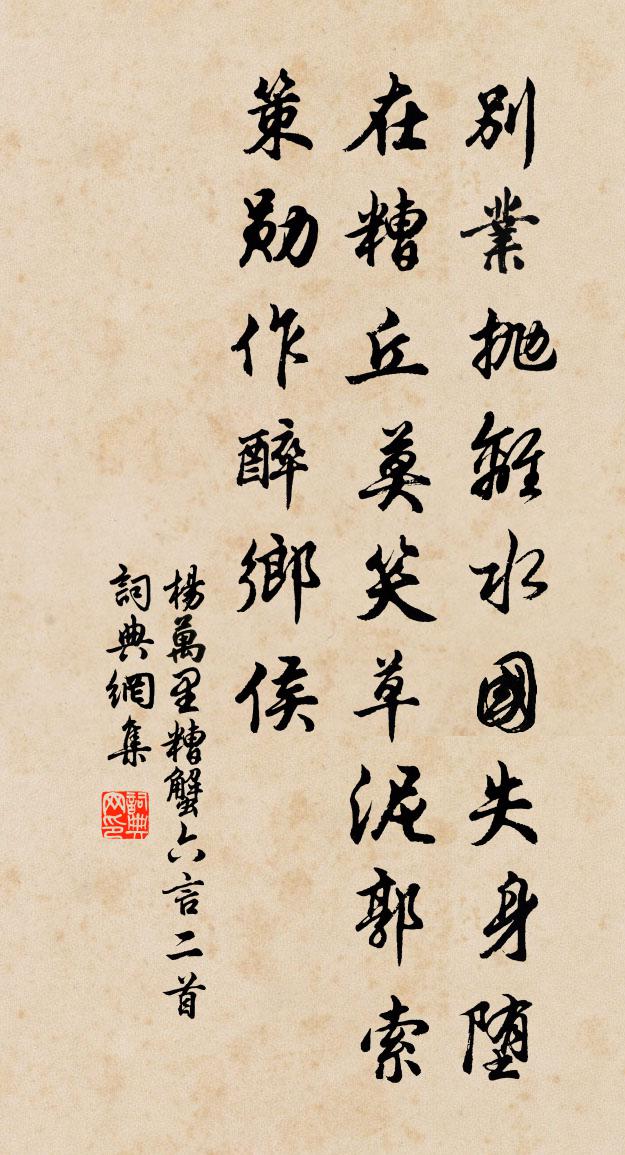 別業拋離水國失身墮
在糟丘莫笑草泥郭索
策勛作醉鄉侯
楊萬里糟蟹六言二首
詞典網集
詞典網印